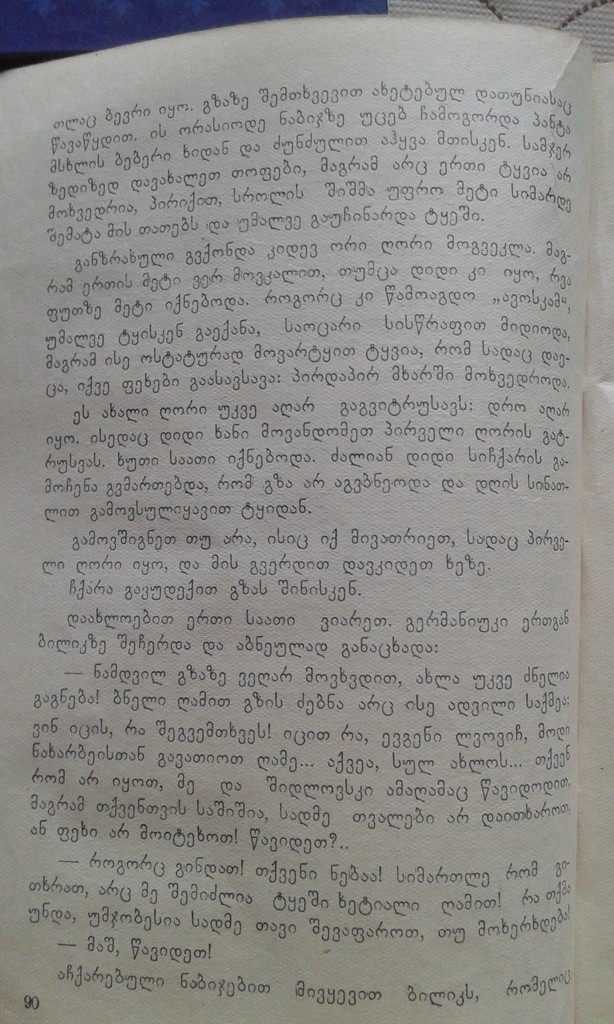 თლაც ბევრი იყო. გზაზე შემთხვევით ახეტებულ დათუნიასაც
წავაწყდით. ის ორასიოდე ნაბიჯზე უცებ ჩამოგორდა პანტა
მსხლის ბებერი ხიდან და ძუნძულით აჰყვა მთისკენ. სამჯერ
ზედიზედ დავახალეთ თოფები, მაგრამ არც ერთი ტყვია არ
მოხვედრია, პირიქით, სროლის შიშმა უფრო მეტი სიმარდე
შემატა მის თათებს და უმალვე გაუჩინარდა ტყეში.
განზრახული გვქონდა კიდევ ორი ღორი მოგვეკლა. მაგ-
რამ ერთის მეტი ვერ მოვკალით, თუმცა დიდი კი იყო, რვა
ფუთზე მეტი იქნებოდა. როგორც კი წამოაგდო „ავოსკამ“,
უმალვე ტყისკენ გაექანა, საოცარი სისწრაფით მიდიოდა,
მაგრამ ისე ოსტატურად მოვარტყით ტყვია, რომ სადაც დაე-
ცა, იქვე ფეხები გაასავსავა: პირდაპირ მხარში მოხვედროდა.
ეს ახალი ღორი უკვე აღარ გაგვიტრუსავს: დრო აღარ
იყო. ისედაც დიდი ხანი მოვანდომეთ პირველი ღორის გატ-
რუსვას. ხუთი საათი იქნებოდა. ძალიან დიდი სიჩქარის გა-
მოჩენა გვმართებდა, რომ გზა არ აგვბნეოდა და დღის სინათ-
ლით გამოვსულიყავით ტყიდან.
გამოვშიგნეთ თუ არა, ისიც იქ მივათრიეთ, სადაც პირვე-
ლი ღორი იყო, და მის გვერდით დავკიდეთ ხეზე.
ჩქარა გავუდექით გზას შინისკენ.
დაახლოებით ერთი საათი ვიარეთ. გერმანიუკი ერთგან
ბილიკზე შეჩერდა და აბნეულად განაცხადა:
— ნამდვილ გზაზე ვეღარ მოვხვდით, ახლა უკვე ძნელია
გაგნება! ბნელი ღამით გზის ძებნა არც ისე ადვილი საქმეა:
ვინ იცის, რა შეგვემთხვეს! იცით რა, ევგენი ლვოვიჩ, მოდი
ნახარბეისთან გავათიოთ ღამე... აქვეა, სულ ახლოს... თქვენ
რომ არ იყოთ, მე და შიდლოვსკი ამაღამაც წავიდოდით,
მაგრამ თქვენთვის საშიშია, სადმე თვალები არ დაითხაროთ.
ან ფეხი არ მოიტეხოთ! წავიდეთ?..
— როგორც გინდათ! თქვენი ნებაა! სიმართლე რომ გი-
თხრათ, არც მე შემიძლია ტყეში ხეტიალი ღამით! რა თქმა
უნდა, უმჯობესია სადმე თავი შევაფაროთ, თუ მოხერხდება!
— მაშ, წავიდეთ!
აჩქარებული ნაბიჯებით მივყევით ბილიკს, რომელიც
90